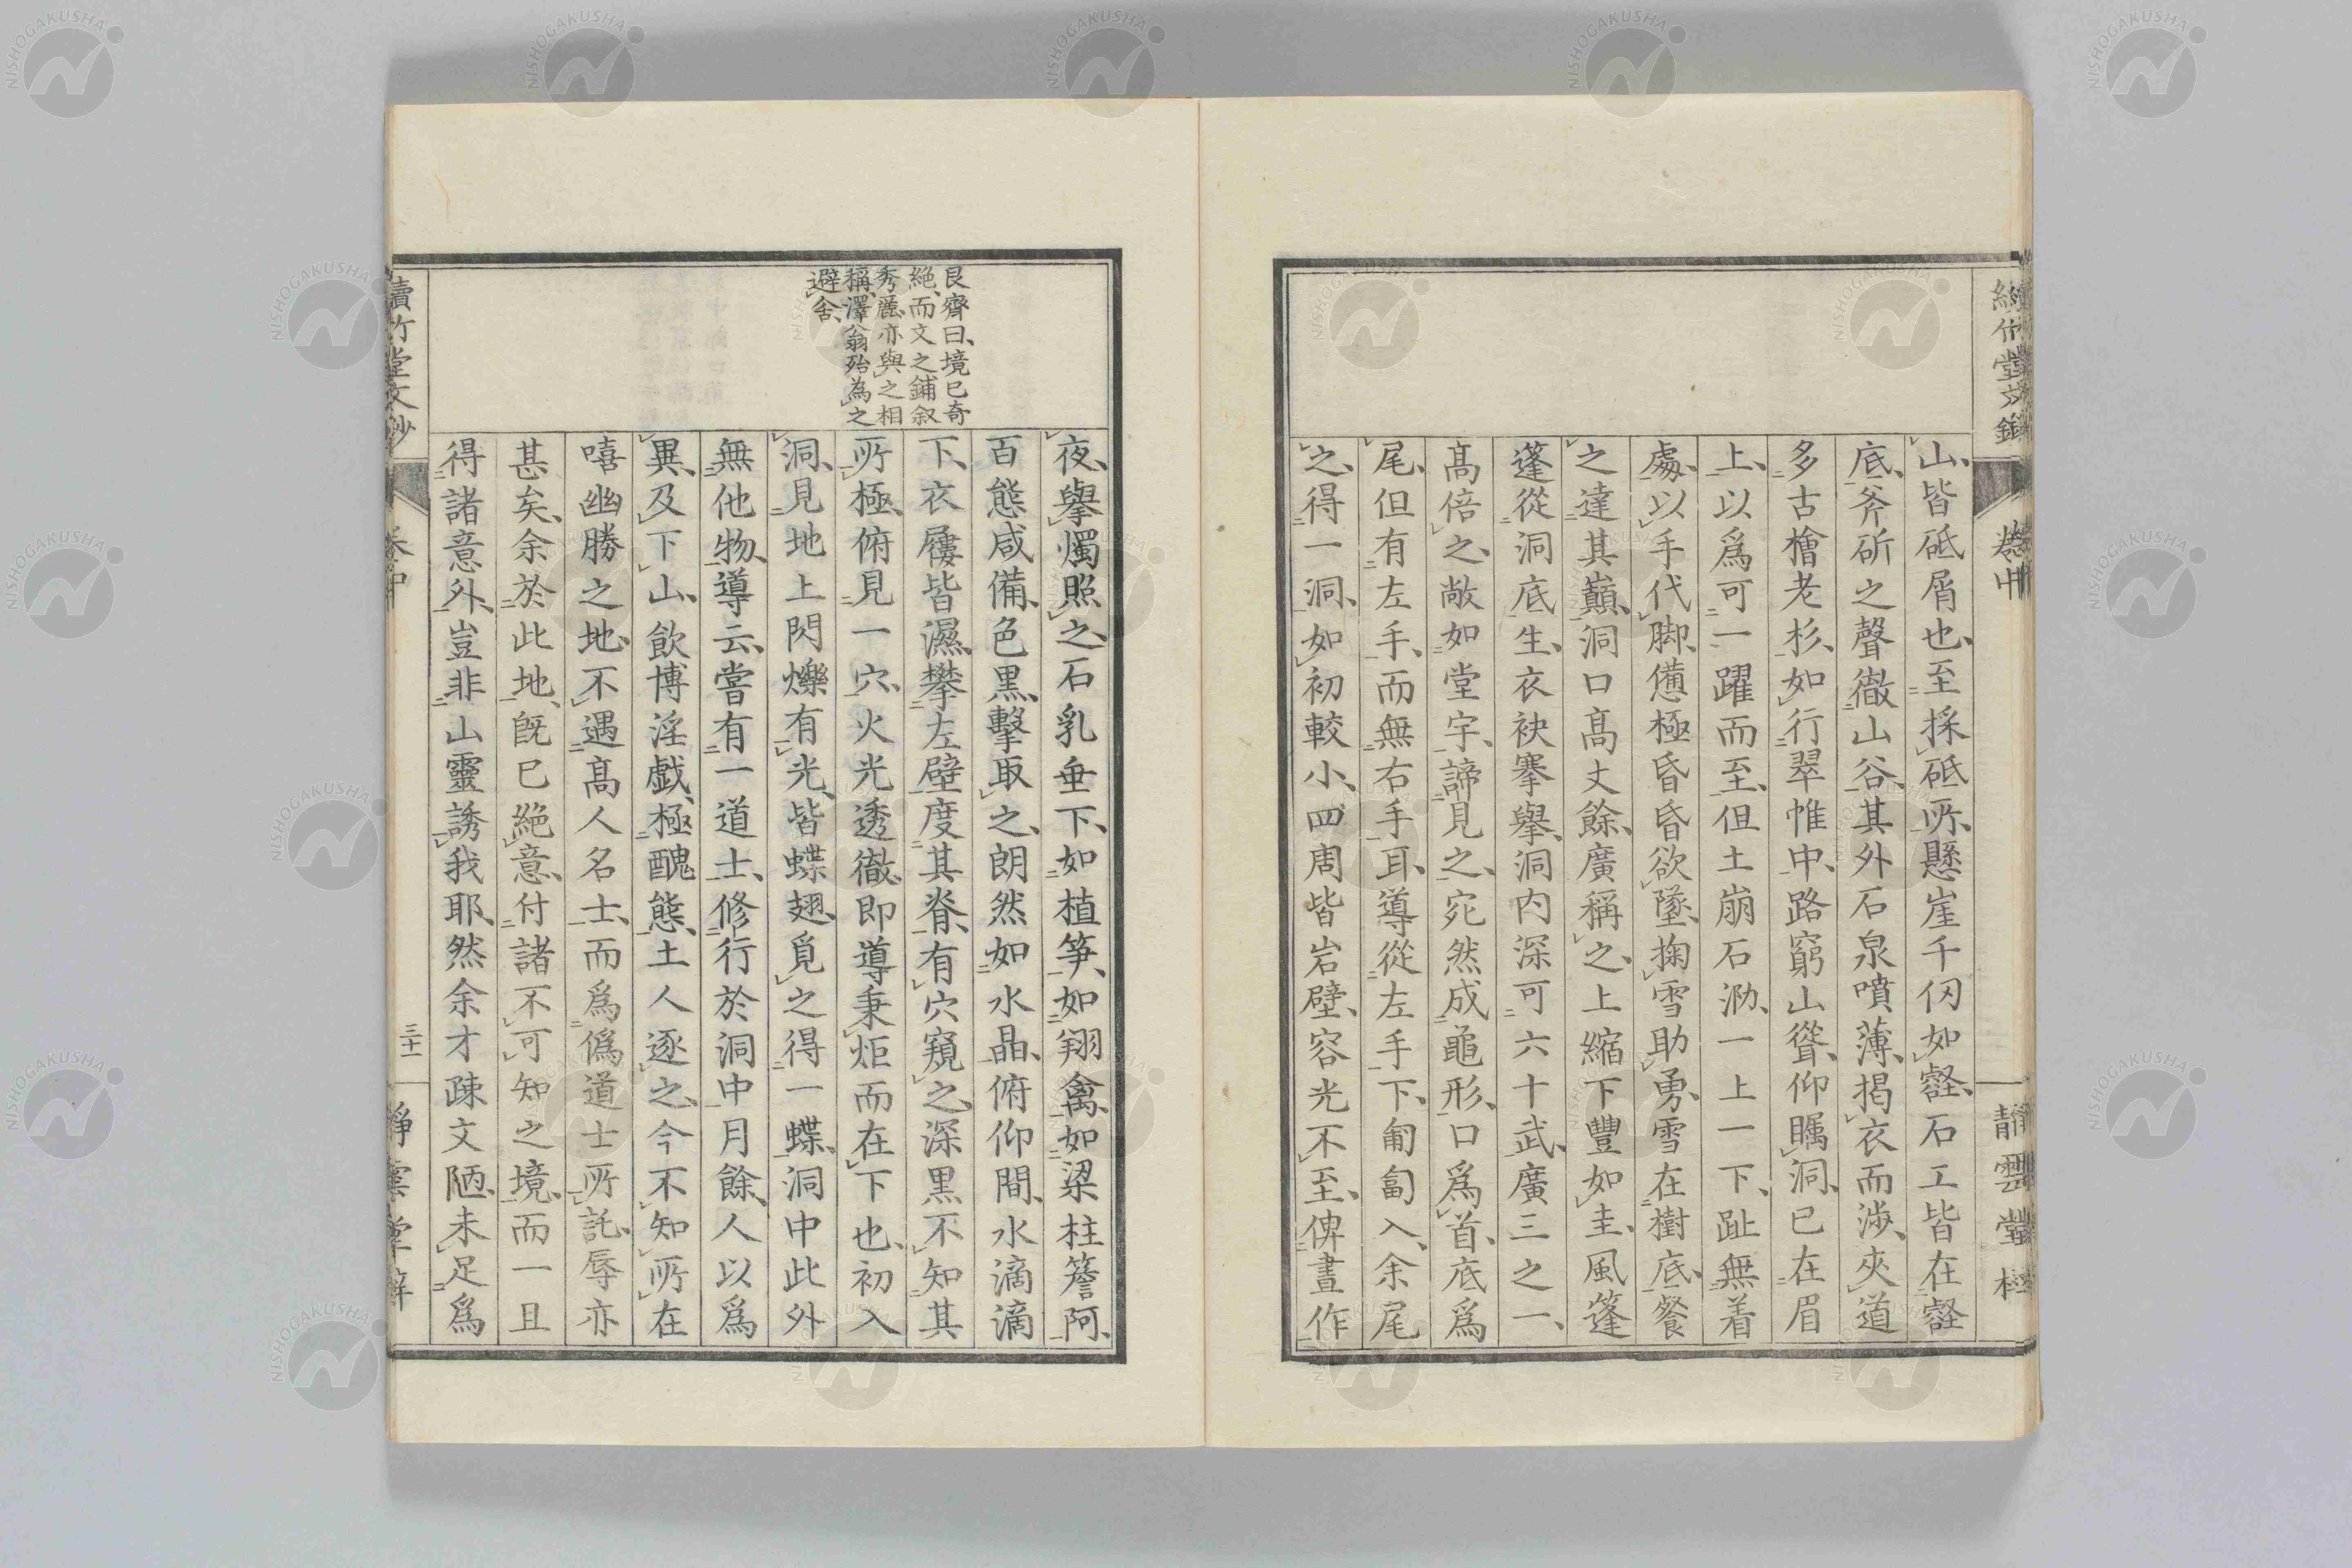 山、皆砥屑也、至採砥所、懸崖千仞如壑、石工皆在壑
底、斧斫之聲徹山谷、其外石泉噴薄、揭衣而涉、夾道
多古檜老杉、如行翠帷中、路窮山聳、仰矚洞已在眉
上、以爲可一躍而至、但土崩石泐、一上一下、趾無着
處、以手代脚、憊極昏昏欲墜、掬雪助勇、雪在樹底、餐
之達其巓、洞口高丈餘、廣稱之、上縮下豐如圭、風篷
篷從洞底生、衣袂搴擧、洞内深可六十武、廣三之一、
高倍之、敞如堂宇、諦見之、宛然成龜形、口爲首、底爲
尾、但有左手、而無右手耳、導從左手下、匍匐入、余尾
之、得一洞、如初較小、四周皆岩壁、容光不至、俾晝作
夜、擧燭照之、石乳垂下、如植笋、如翔禽、如梁柱簷阿、
百態咸備、色黒、擊取之、朗然如水晶、俯仰間、水滴滴
下、衣屨皆濕、攀左壁度其脊、有穴窺之、深黒不知其
所極、俯見一穴、火光透徹、即導秉炬而在下也、初入
洞、見地上閃爍有光、皆蝶翅、覓之得一蝶、洞中此外
無他物、導云、嘗有一道士、修行於洞中月餘、人以爲
異、及下山、飲博淫戲、極醜態、土人逐之、今不知所在
嘻幽勝之地、不遇高人名士、而爲僞道士所託、辱亦
甚矣、余於此地、既已絶意、付諸不可知之境、而一旦
得諸意外、豈非山靈誘我耶、然余才疎文陋、未足爲
艮齊曰、境已奇
絶、而文之鋪叙
秀麗、亦與之相
稱、澤翁殆為之
避舍、
續竹堂文鈔
卷中
三十一
靜雲堂梓